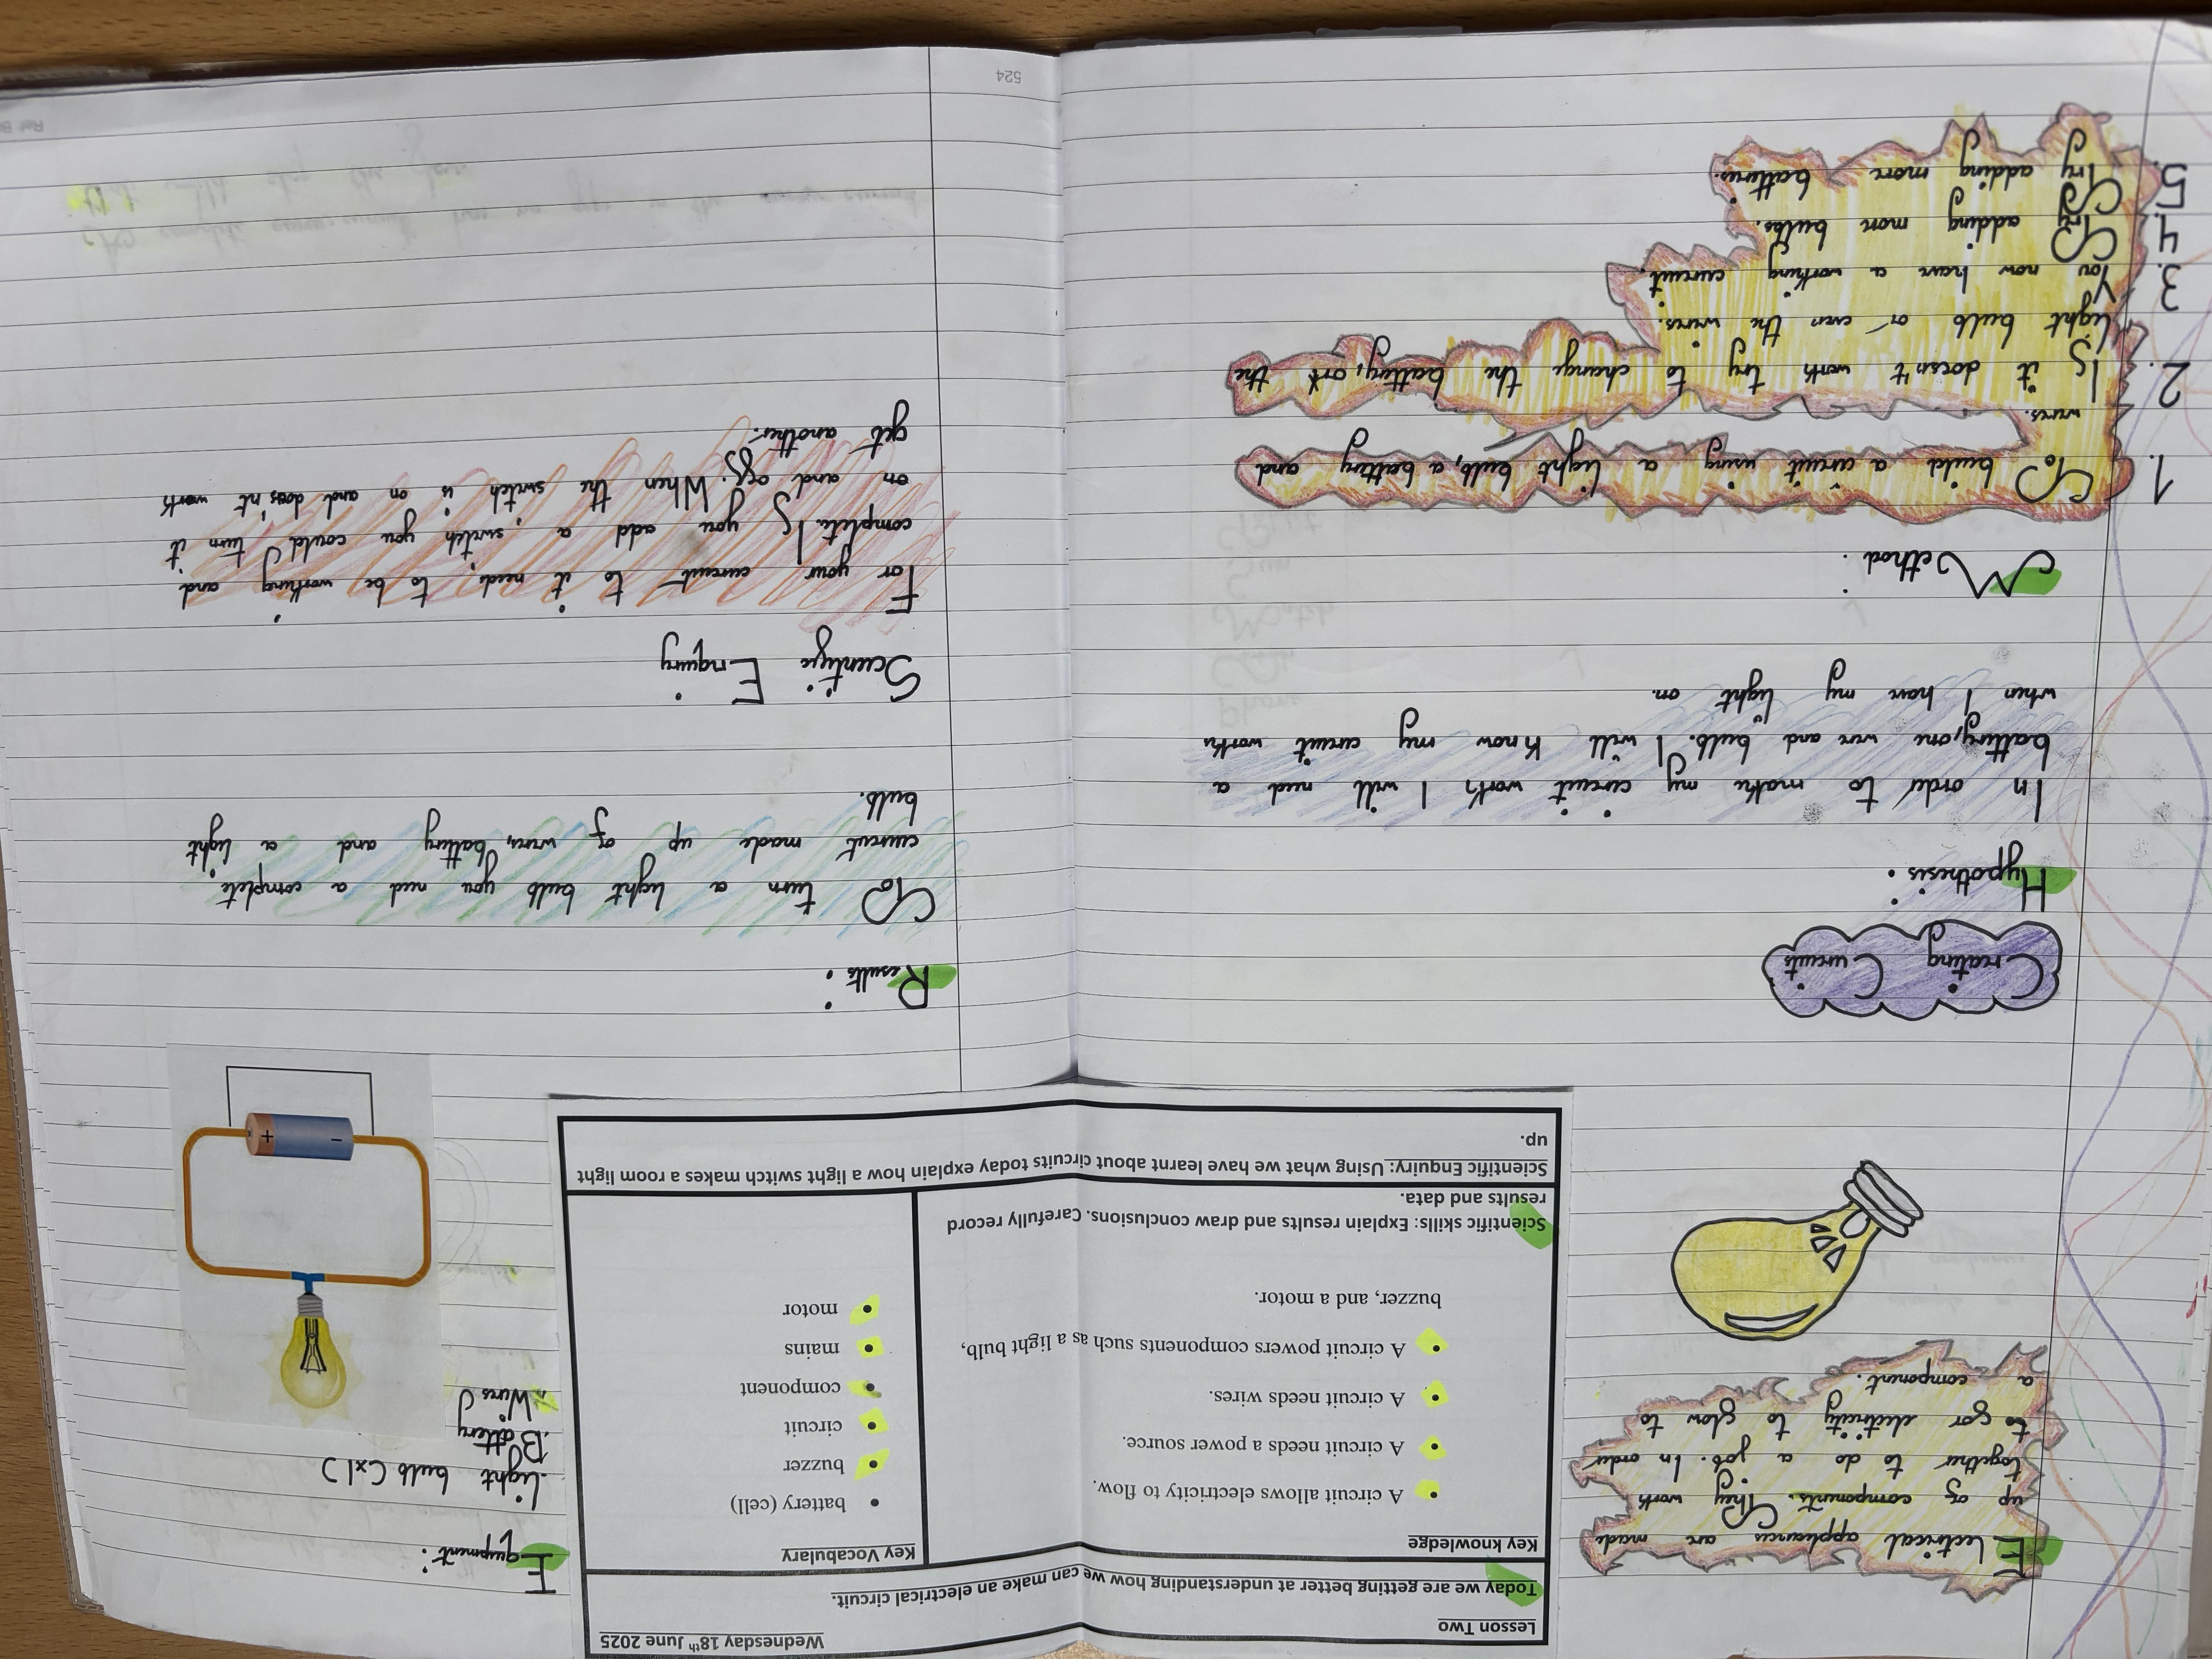 Lesson Two
Wednesday 18th June 2025
Today we are getting better at understanding how we can make an electrical circuit.
Key knowledge
A circuit allows electricity to flow.
A circuit needs a power source.
A circuit needs wires.
A circuit powers components such as a light bulb,
buzzer, and a motor.
Scientific skills: Explain results and draw conclusions. Carefully record
results and data.
Key Vocabulary
battery (cell)
buzzer
circuit
component
mains
motor
Scientific Enquiry: Using what we have learnt about circuits today explain how a light switch makes a room light
up.
Electrical appliances are made
up of components. They work
together to do a job. In order
to for electricity to flow to
a component.
Creating Circuits
Hypothesis:
In order to make my circuit work I will need a
battery, one wire and bulb. I will know my circuit works
when I have my light on.
Method:
1. To build a circuit using a light bulb, a battery and
wires.
2. If it doesn't work try to change the battery, or the
light bulb or even the wires.
3. You now have a working current.
4. Try adding more bulbs.
5. Try adding more batteries.
Equipment:
Light bulb (x1)
Battery
Wires
+ −
Results:
To turn a light bulb you need a complete
current made up of wires, battery and a light
bulb.
Scientific Enquiry
For your current to it needs to be working and
complete. If you add a switch, you could turn it
on and off. When the switch is on and does'nt work
get another.
524